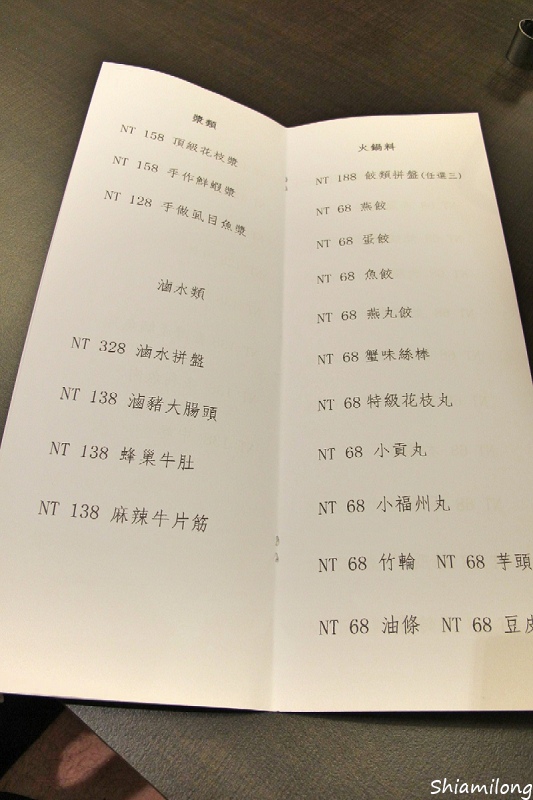 漿類
NT 158 頂級花枝漿
NT 158 手作鮮蝦漿
NT 128 手做虱目魚漿
滷水類
NT 328 滷水拼盤
NT 138 滷豬大腸頭
NT 138 蜂巢牛肚
NT 138 麻辣牛片筋
火鍋料
NT 188 餃類拼盤(任選三)
NT 68 燕餃
NT 68 蛋餃
NT 68 魚餃
NT 68 燕丸餃
NT 68 蟹味絲棒
NT 68 特級花枝丸
NT 68 小貢丸
NT 68 小福州丸
NT 68 竹輪 NT 68 芋頭
NT 68 油條 NT 68 豆皮
Shiamilong